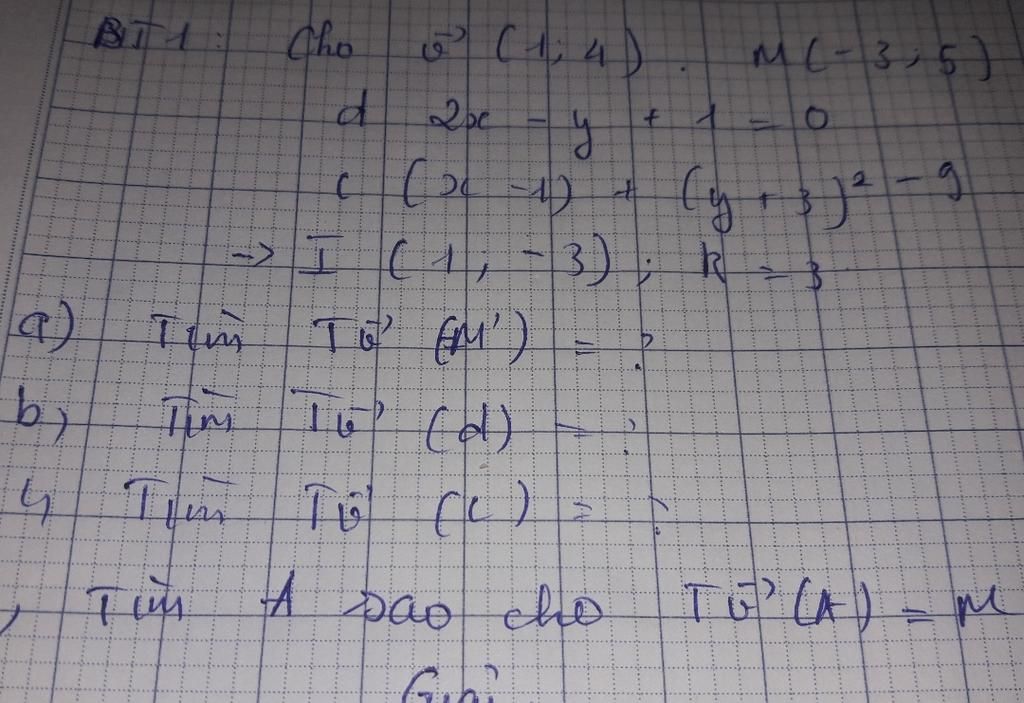 BT1: Cho v⃗ (1; 4). M(-3; 5)
d 2x - y + 1 = 0
c (x - 1) + (y + 3)² - 9
-> I (1, -3); R = 3
a) Tìm Tv⃗ (M') = ?
b, Tìm Tv⃗ (d) = ?
c, Tìm Tv⃗ (c) = ?
, Tìm A sao cho Tv⃗ (A) = M
Giải